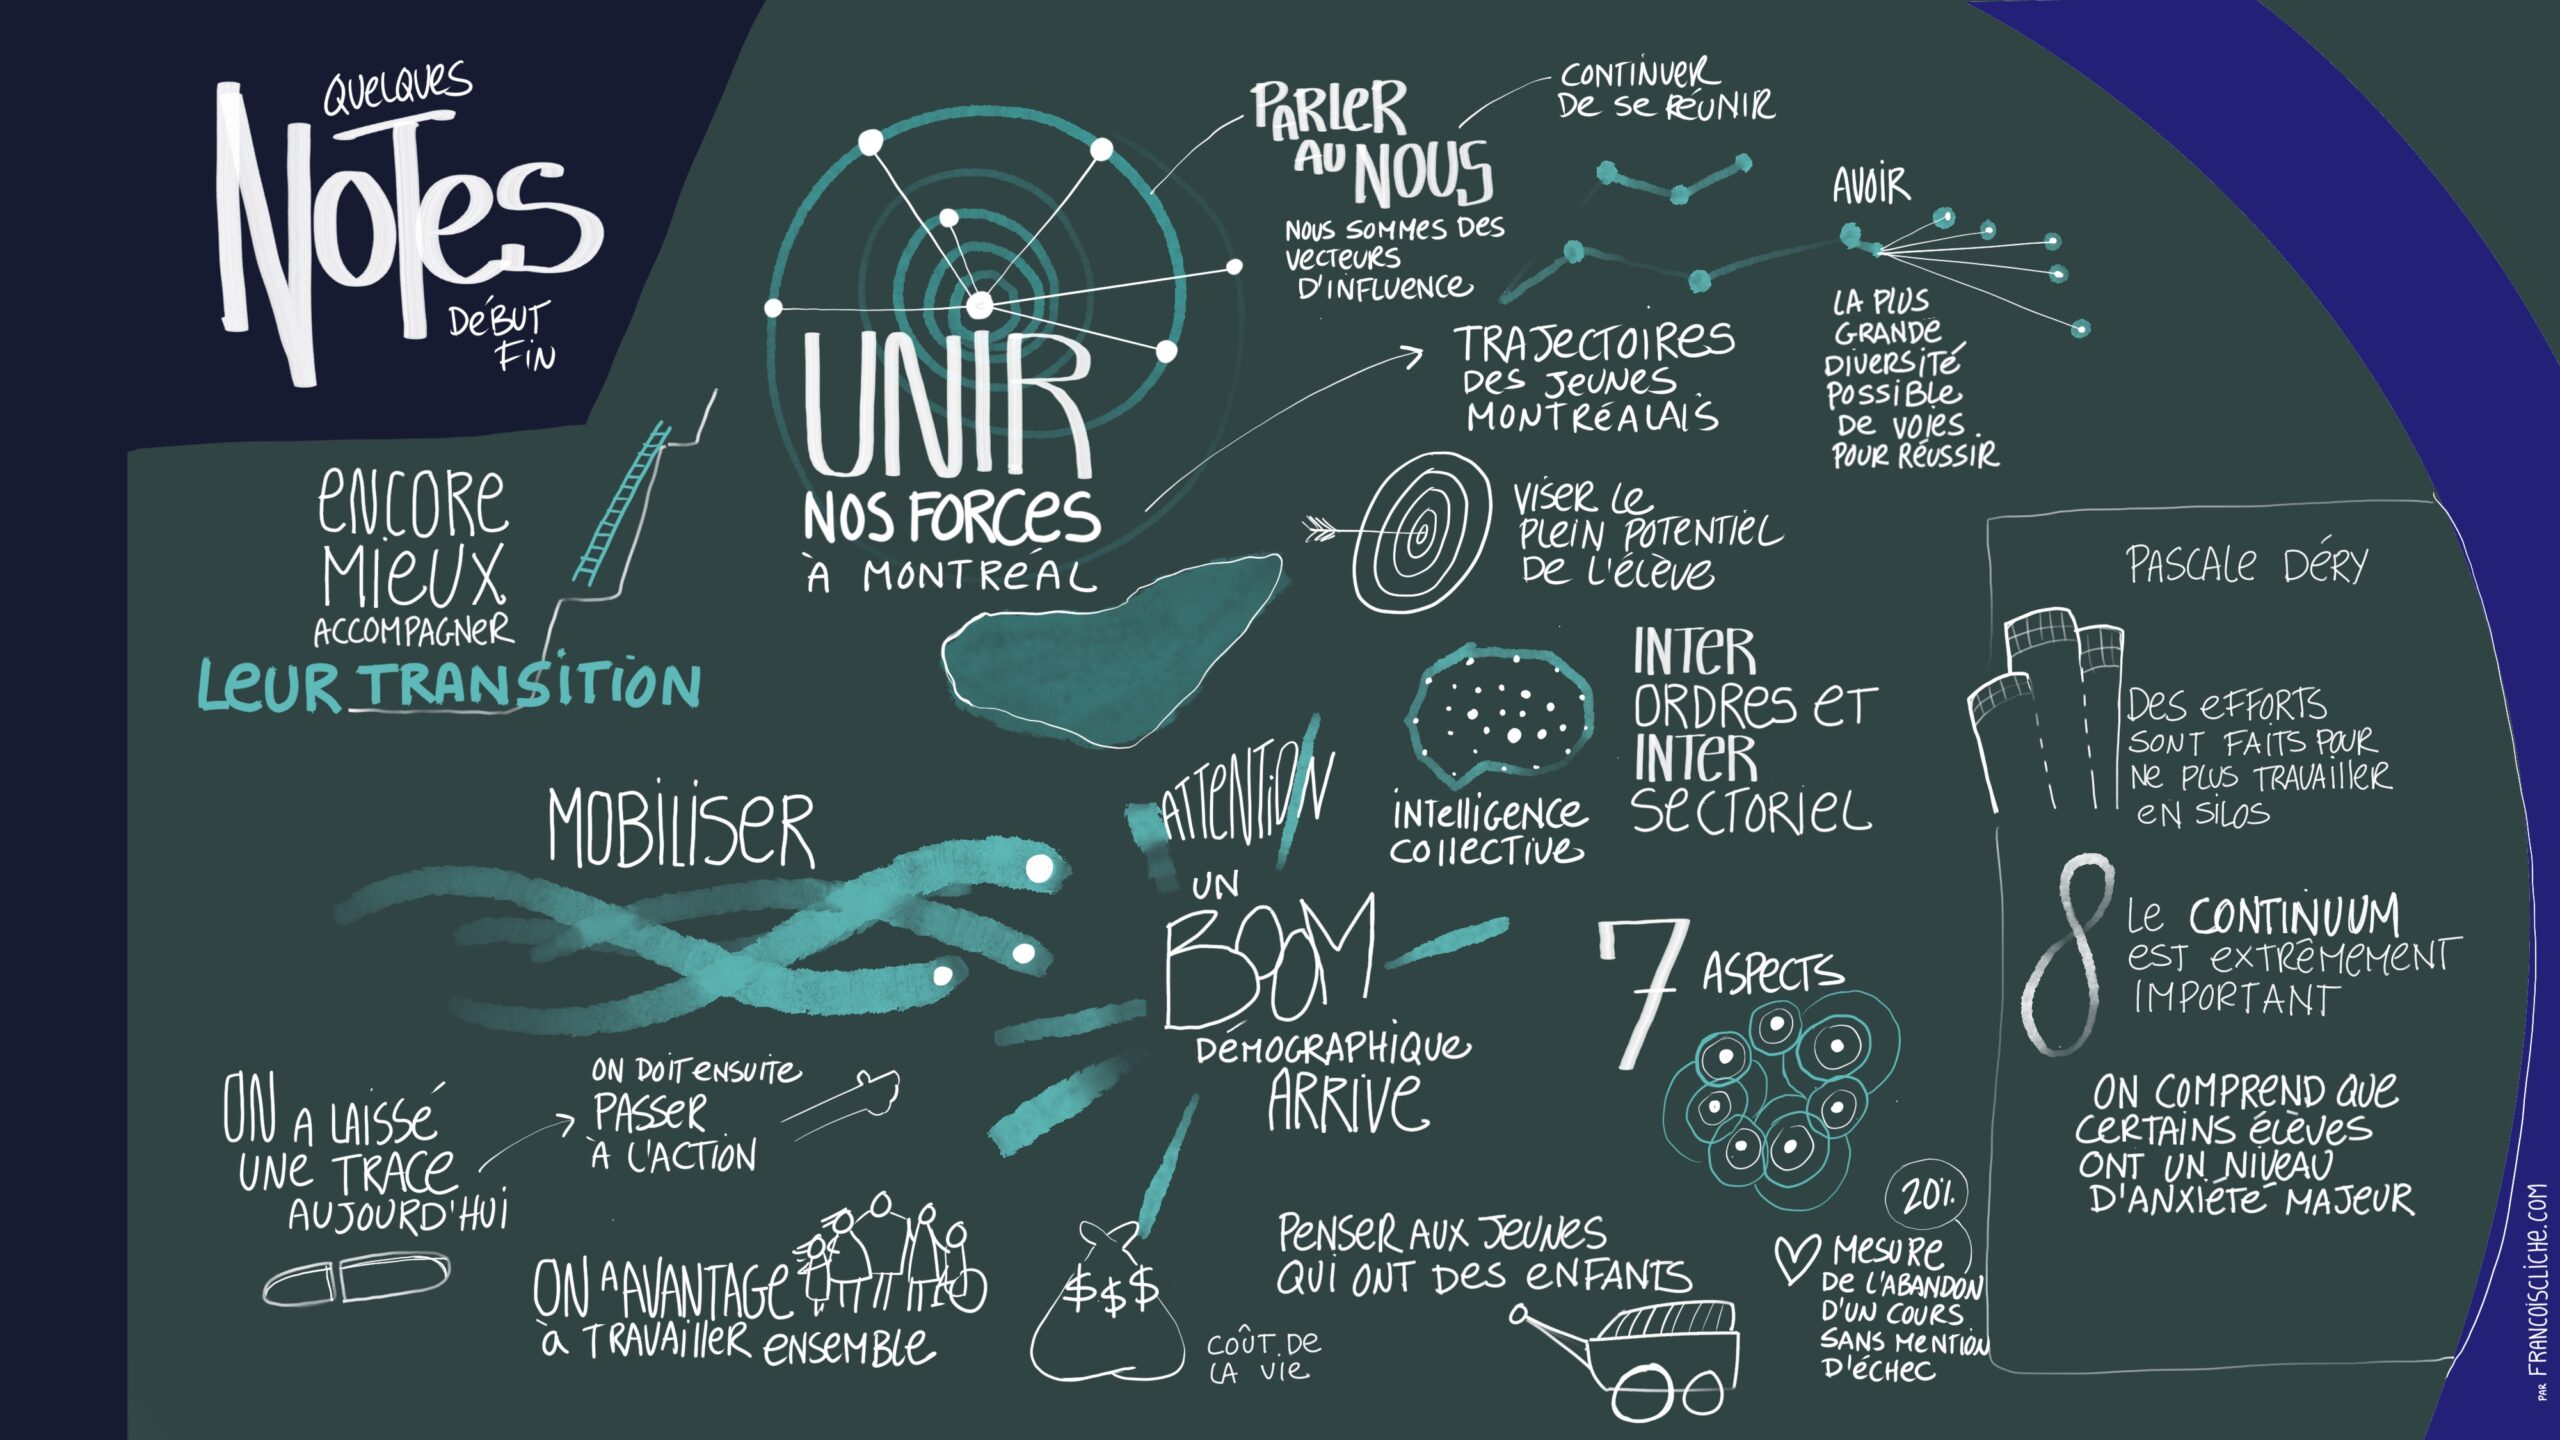 QUELQUES
NOTES
DÉBUT
FIN
ENCORE
MIEUX
ACCOMPAGNER
LEUR TRANSITION
UNIR
NOS FORCES
À MONTRÉAL
PARLER
AU NOUS
NOUS SOMMES DES
VECTEURS
D'INFLUENCE
CONTINUER
DE SE RÉUNIR
TRAJECTOIRES
DES JEUNES
MONTRÉALAIS
AVOIR
LA PLUS
GRANDE
DIVERSITÉ
POSSIBLE
DE VOIES
POUR RÉUSSIR
VISER LE
PLEIN POTENTIEL
DE L'ÉLÈVE
INTELLIGENCE
COLLECTIVE
INTER
ORDRES ET
INTER
SECTORIEL
MOBILISER
ATTENTION
UN
BOOM
DÉMOGRAPHIQUE
ARRIVE
7 ASPECTS
ON A LAISSÉ
UNE TRACE
AUJOURD'HUI
ON DOIT ENSUITE
PASSER
À L'ACTION
ON A AVANTAGE
À TRAVAILLER ENSEMBLE
$$$
COÛT DE
LA VIE
PENSER AUX JEUNES
QUI ONT DES ENFANTS
20%
MESURE
DE L'ABANDON
D'UN COURS
SANS MENTION
D'ÉCHEC
PASCALE DÉRY
DES EFFORTS
SONT FAITS POUR
NE PLUS TRAVAILLER
EN SILOS
LE CONTINUUM
EST EXTRÊMEMENT
IMPORTANT
ON COMPREND QUE
CERTAINS ÉLÈVES
ONT UN NIVEAU
D'ANXIÉTÉ MAJEUR
PAR FRANCOISCLICHE.COM